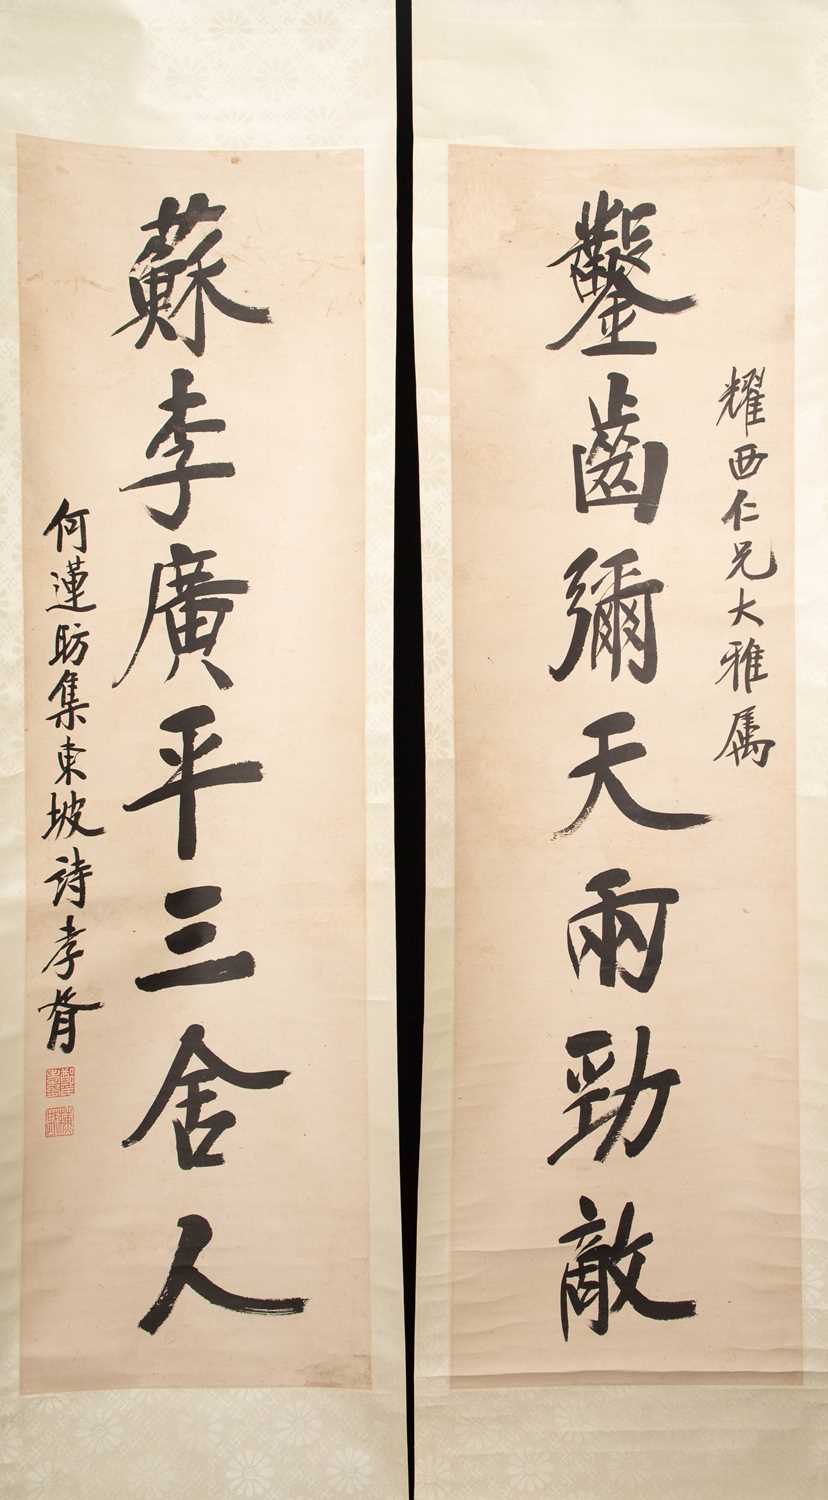 耀西仁兄大雅属
鑿齒彌天兩勁敵
蘇李廣平三舍人
何蓮昉集東坡詩孝胥